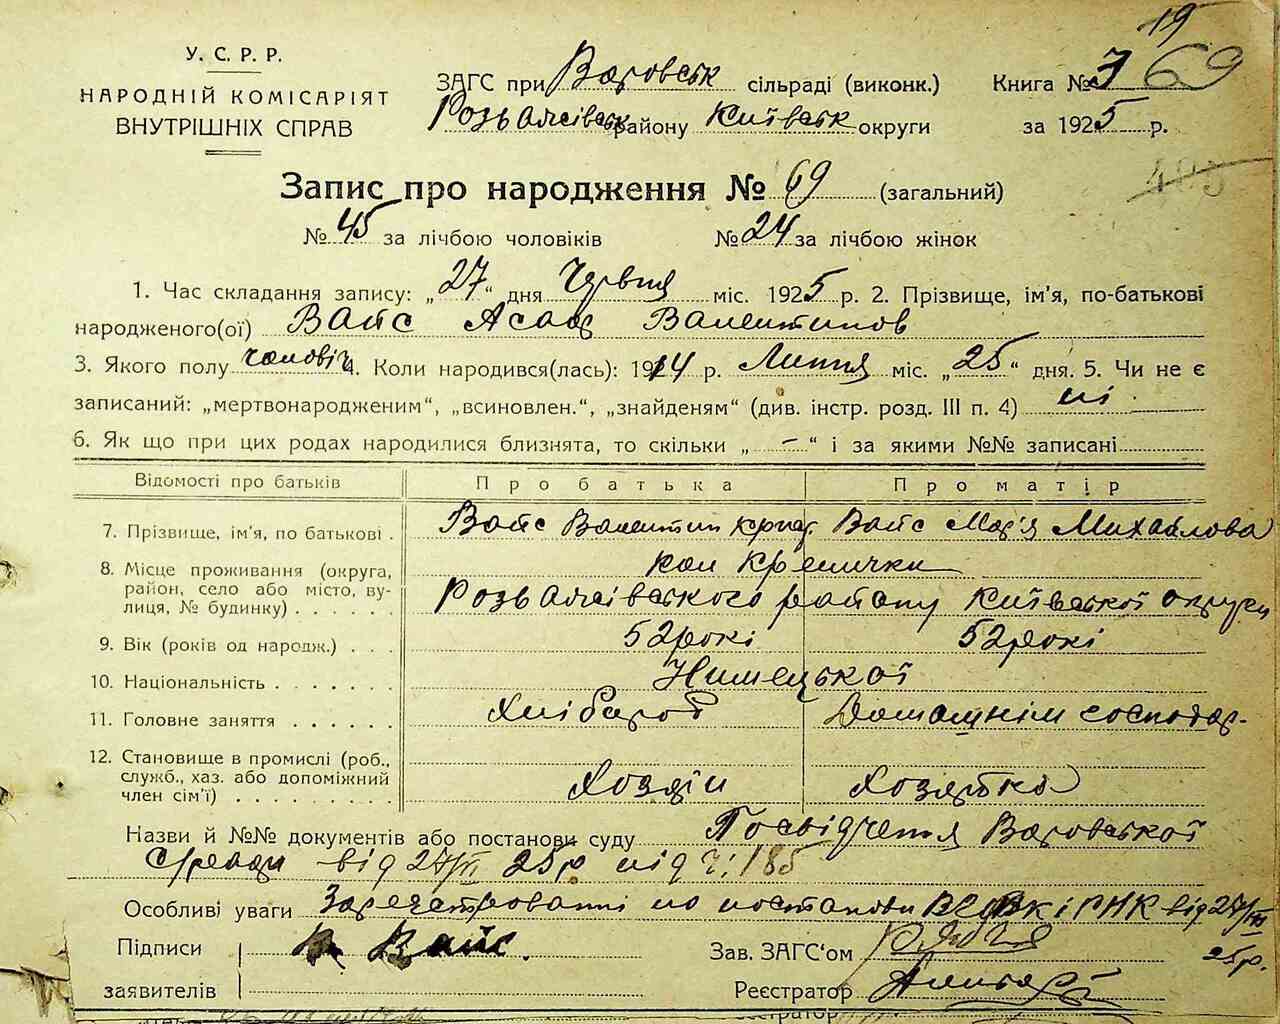 19
У. С. Р. Р.
НАРОДНІЙ КОМІСАРІЯТ
ВНУТРІШНІХ СПРАВ
ЗАГС при Воровськ сільраді (виконк.) Книга № 7 69
району Київськ округи за 1925 р.
Запис про народження № 69 (загальний)
№ 45 за лічбою чоловіків № 24 за лічбою жінок
1. Час складання запису: „27“ дня Червня міс. 1925 р. 2. Прізвище, ім'я, по-батькові
народженого(ої) Вайс Валентинов
3. Якого полу чоловіч 4. Коли народився(лась): 1914 р. міс. „25“ дня. 5. Чи не є
записаний: „мертвонародженим“, „всиновлен.“, „знайденям“ (див. інстр. розд. III п. 4) ні
6. Як що при цих родах народилися близнята, то скільки „ – “ і за якими №№ записані
Відомості про батьків Про батька Про матір
7. Прізвище, ім'я, по батькові . Вайс Валентин Вайс Мар'я Михайлова
8. Місце проживання (округа, район, село або місто, вулиця, № будинку) . . . . . кол
району Київської округи
9. Вік (років од народж.) . . . 52 рокі 52 рокі
10. Національність . . . . . . . Нимецької
11. Головне заняття . . . . . . Хлібороб Домашнім господар-
12. Становище в промислі (роб., служб., хаз. або допоміжний член сім'ї) . . . . . . . . . Хозяін Хозяйка
Назви й №№ документів або постанови суду Посвідчення Воровської
с/ради від 27/VI 25р під ч: 185
Особливі уваги Зареєстрованні по постанови ВУЦВК і РНК від
25р.
Підписи В Вайс. Зав. ЗАГС'ом
заявителів Реєстратор